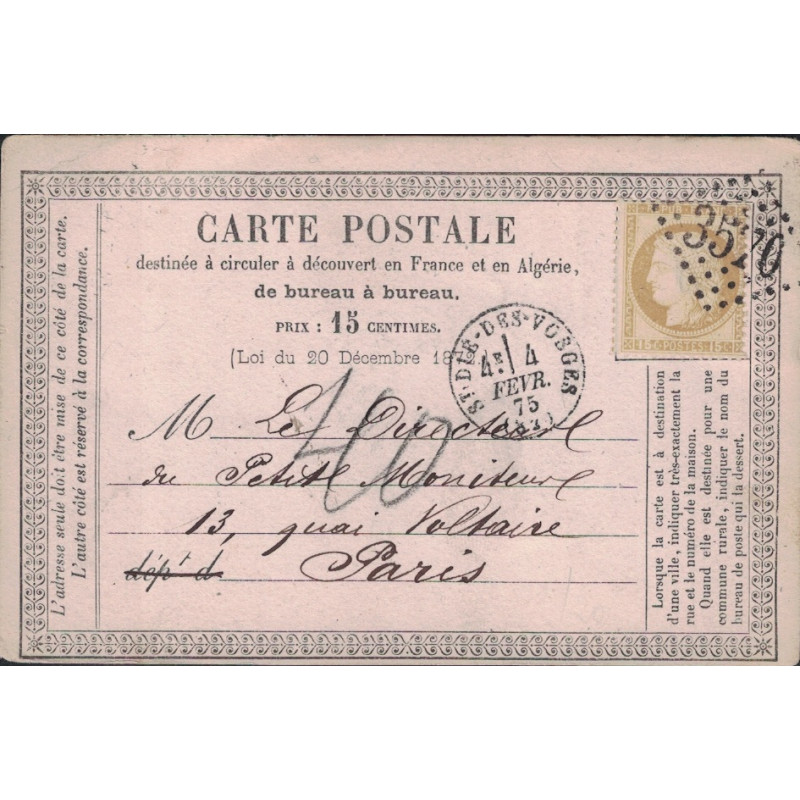 L'adresse seule doit être mise de ce côté de la carte.
L'autre côté est réservé à la correspondance.
CARTE POSTALE
destinée à circuler à découvert en France et en Algérie,
de bureau à bureau.
PRIX : 15 CENTIMES.
(Loi du 20 Décembre 18
3576
15 C·POSTES·15 C
ST-DIÉ-DES-VOSGES
4E 4
FEVR.
75
40
M. Le Directeur
du Petit Moniteur
13, quai Voltaire
dépt d
Paris
Lorsque la carte est à destination
d'une ville, indiquer très-exactement la
rue et le numéro de la maison.
Quand elle est destinée pour une
commune rurale, indiquer le nom du
bureau de poste qui la dessert.